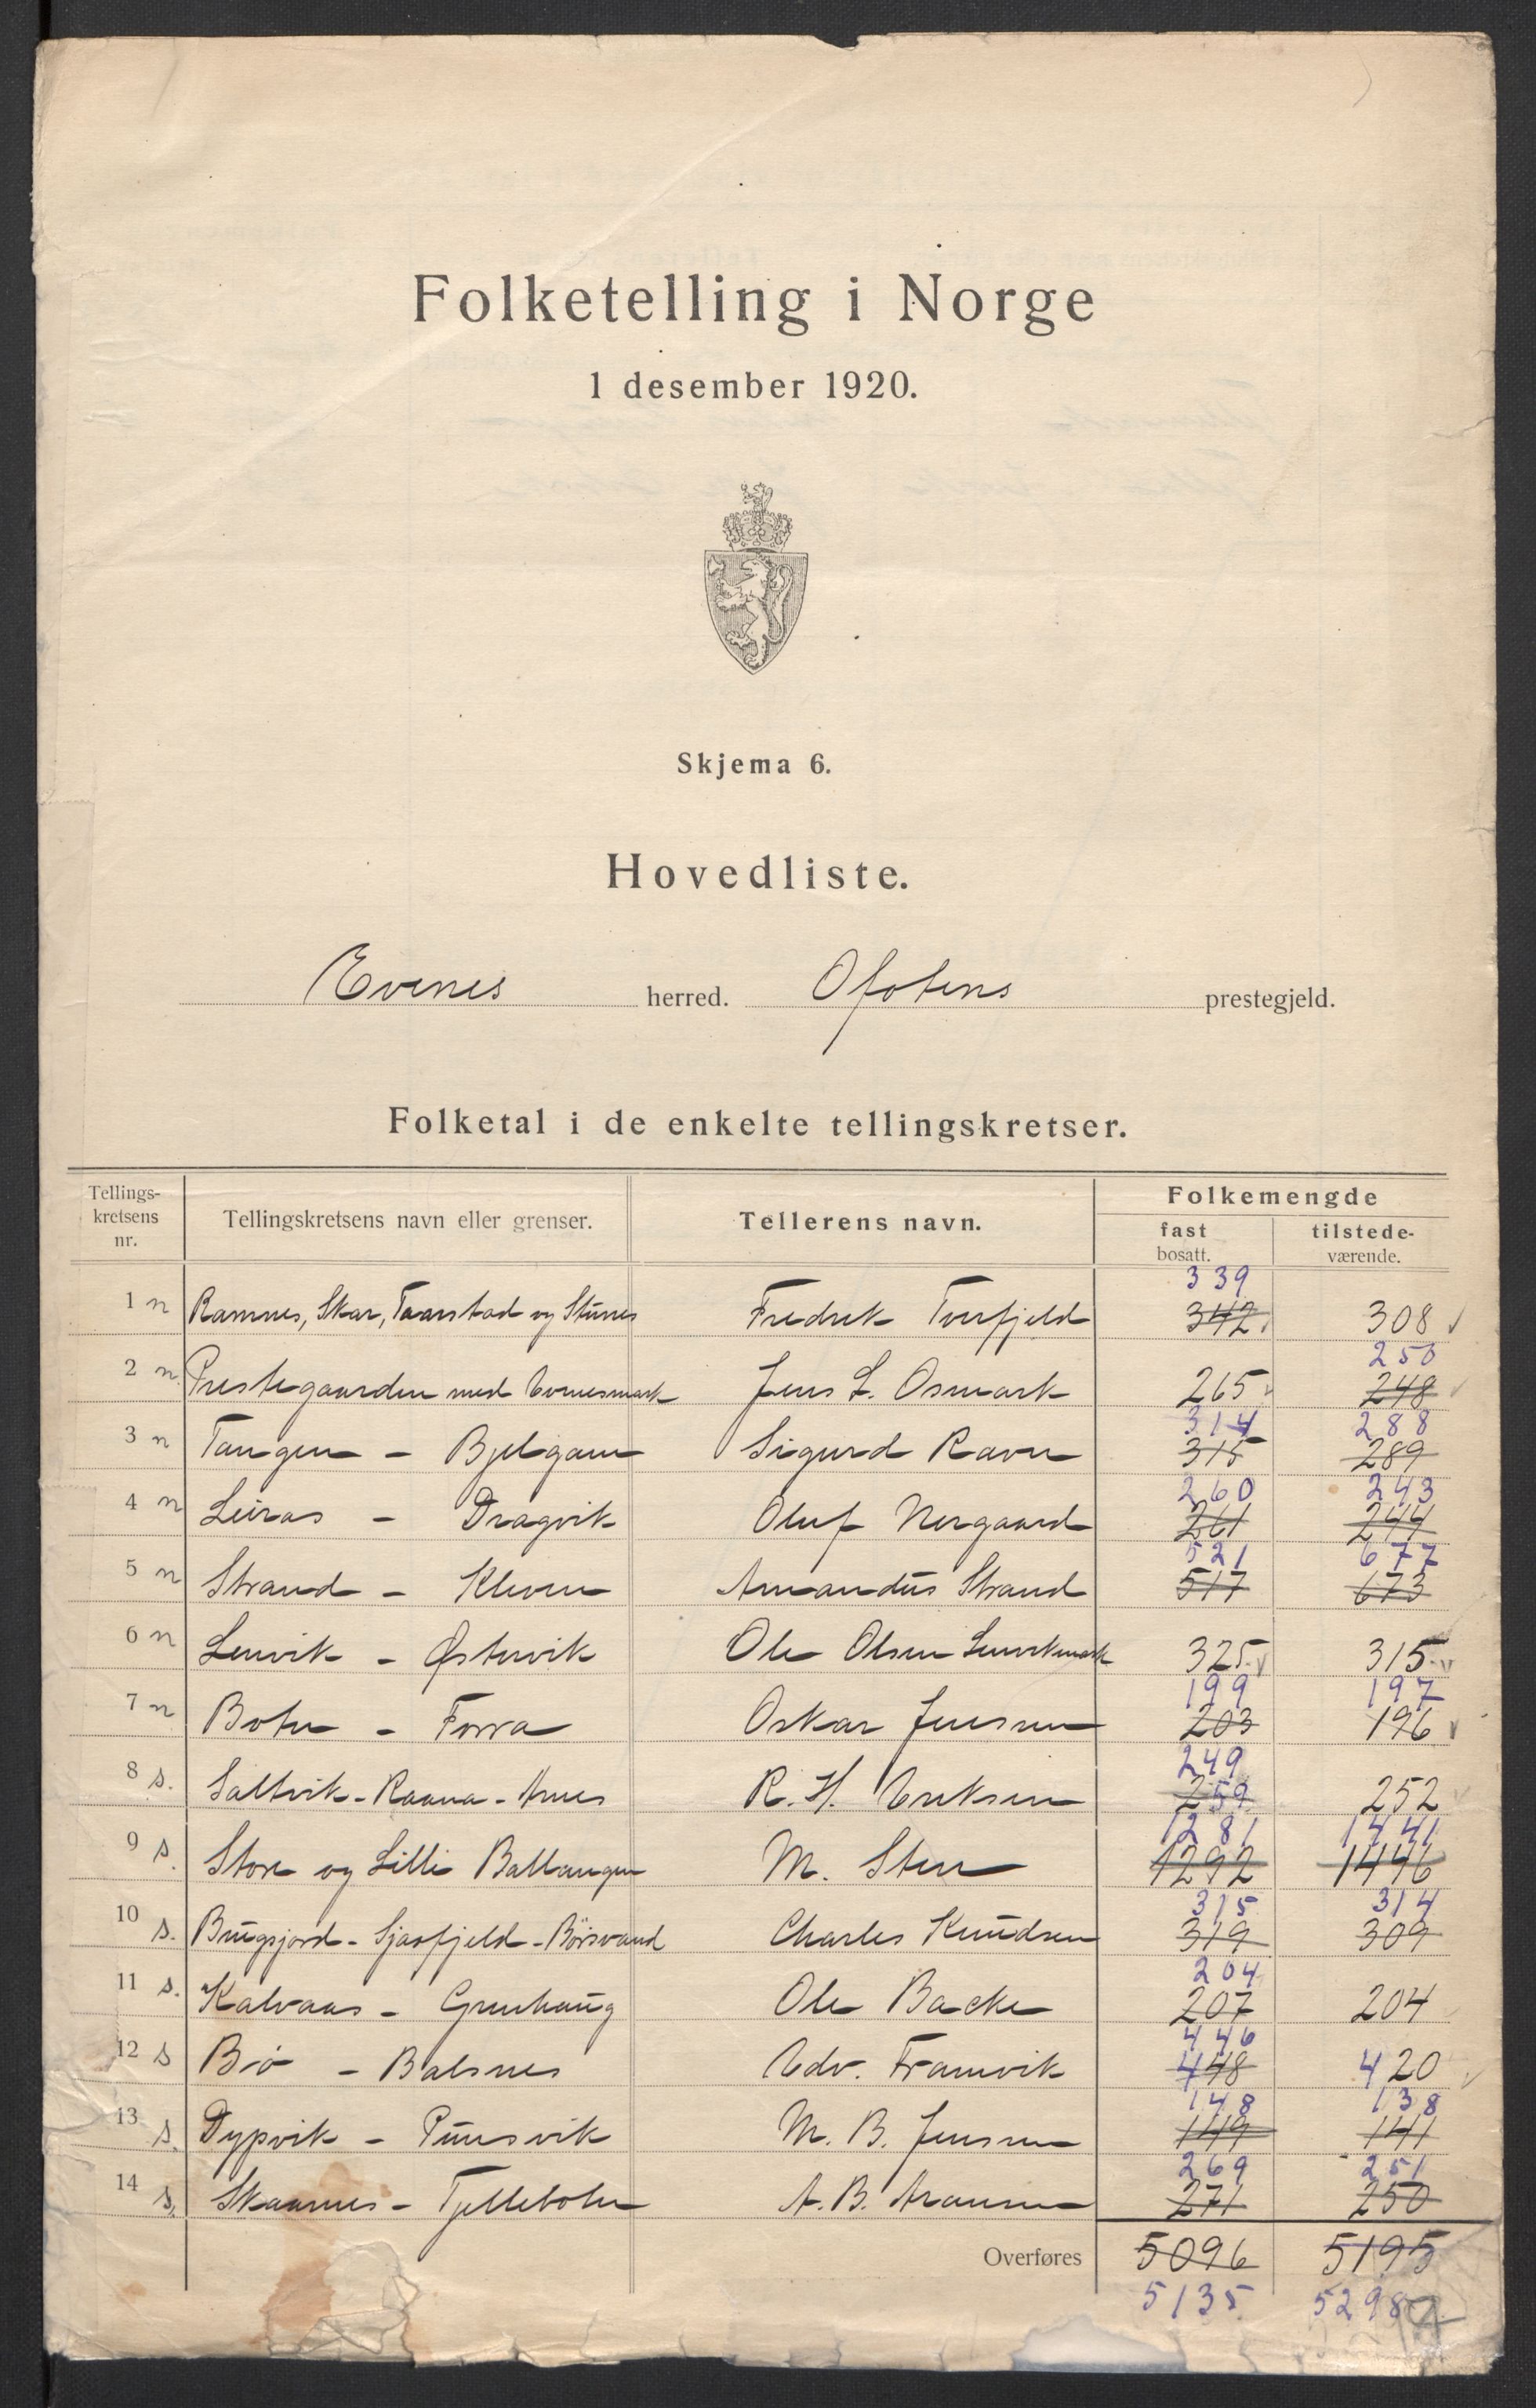 Folketelling i Norge
1 desember 1920.
Skjema 6.
Hovedliste.
Evenes herred. Ofotens prestegjeld.
Folketal i de enkelte tellingskretser.
Tellings-
kretsens
nr.
Tellingskretsens navn eller grenser.
Tellerens navn.
Folkemengde
fast
bosatt.
tilstede-
værende.
339
1 n Ramnes, Skar, Taarstad og Stunes Fredrik Tverfjeld 342 308
250
2 n. Prestegaarden med Evenesmark Jens L. Osmark 265 248
314 288
3 n Tangen - Bjelgam Sigurd Ravn 315 289
260 243
4 n Leiraas - Dragvik Oluf Nergaard 261 244
521 677
5 n Strand - Kleven Amandus Strand 517 673
6 n Lenvik - Østervik Ole Olsen Lenvikmark 325 315
199 197
7 n Botn - Forra Oskar Jensen 203 196
249
8 s. Saltvik - Raana - Arnes R. H. Eriksen 259 252
1281 1441
9 s. Store og Lille Ballangen M. Sten 1292 1446
315 314
10 s. Sjaafjeld - Børsvand Charles Knudsen 319 309
204
11 s. Kalvaas - Grenhaug Ole Backe 207 204
446
12 s Bø - Balsnes Edv. Framvik 448 420
148 138
13 s. Dypvik - Punsvik M. B. Jensen 149 141
269 251
14 s. Skaarnes - Tjellebotn A. B. Aronsen 271 250
Overføres 5096 5195
5135 5298